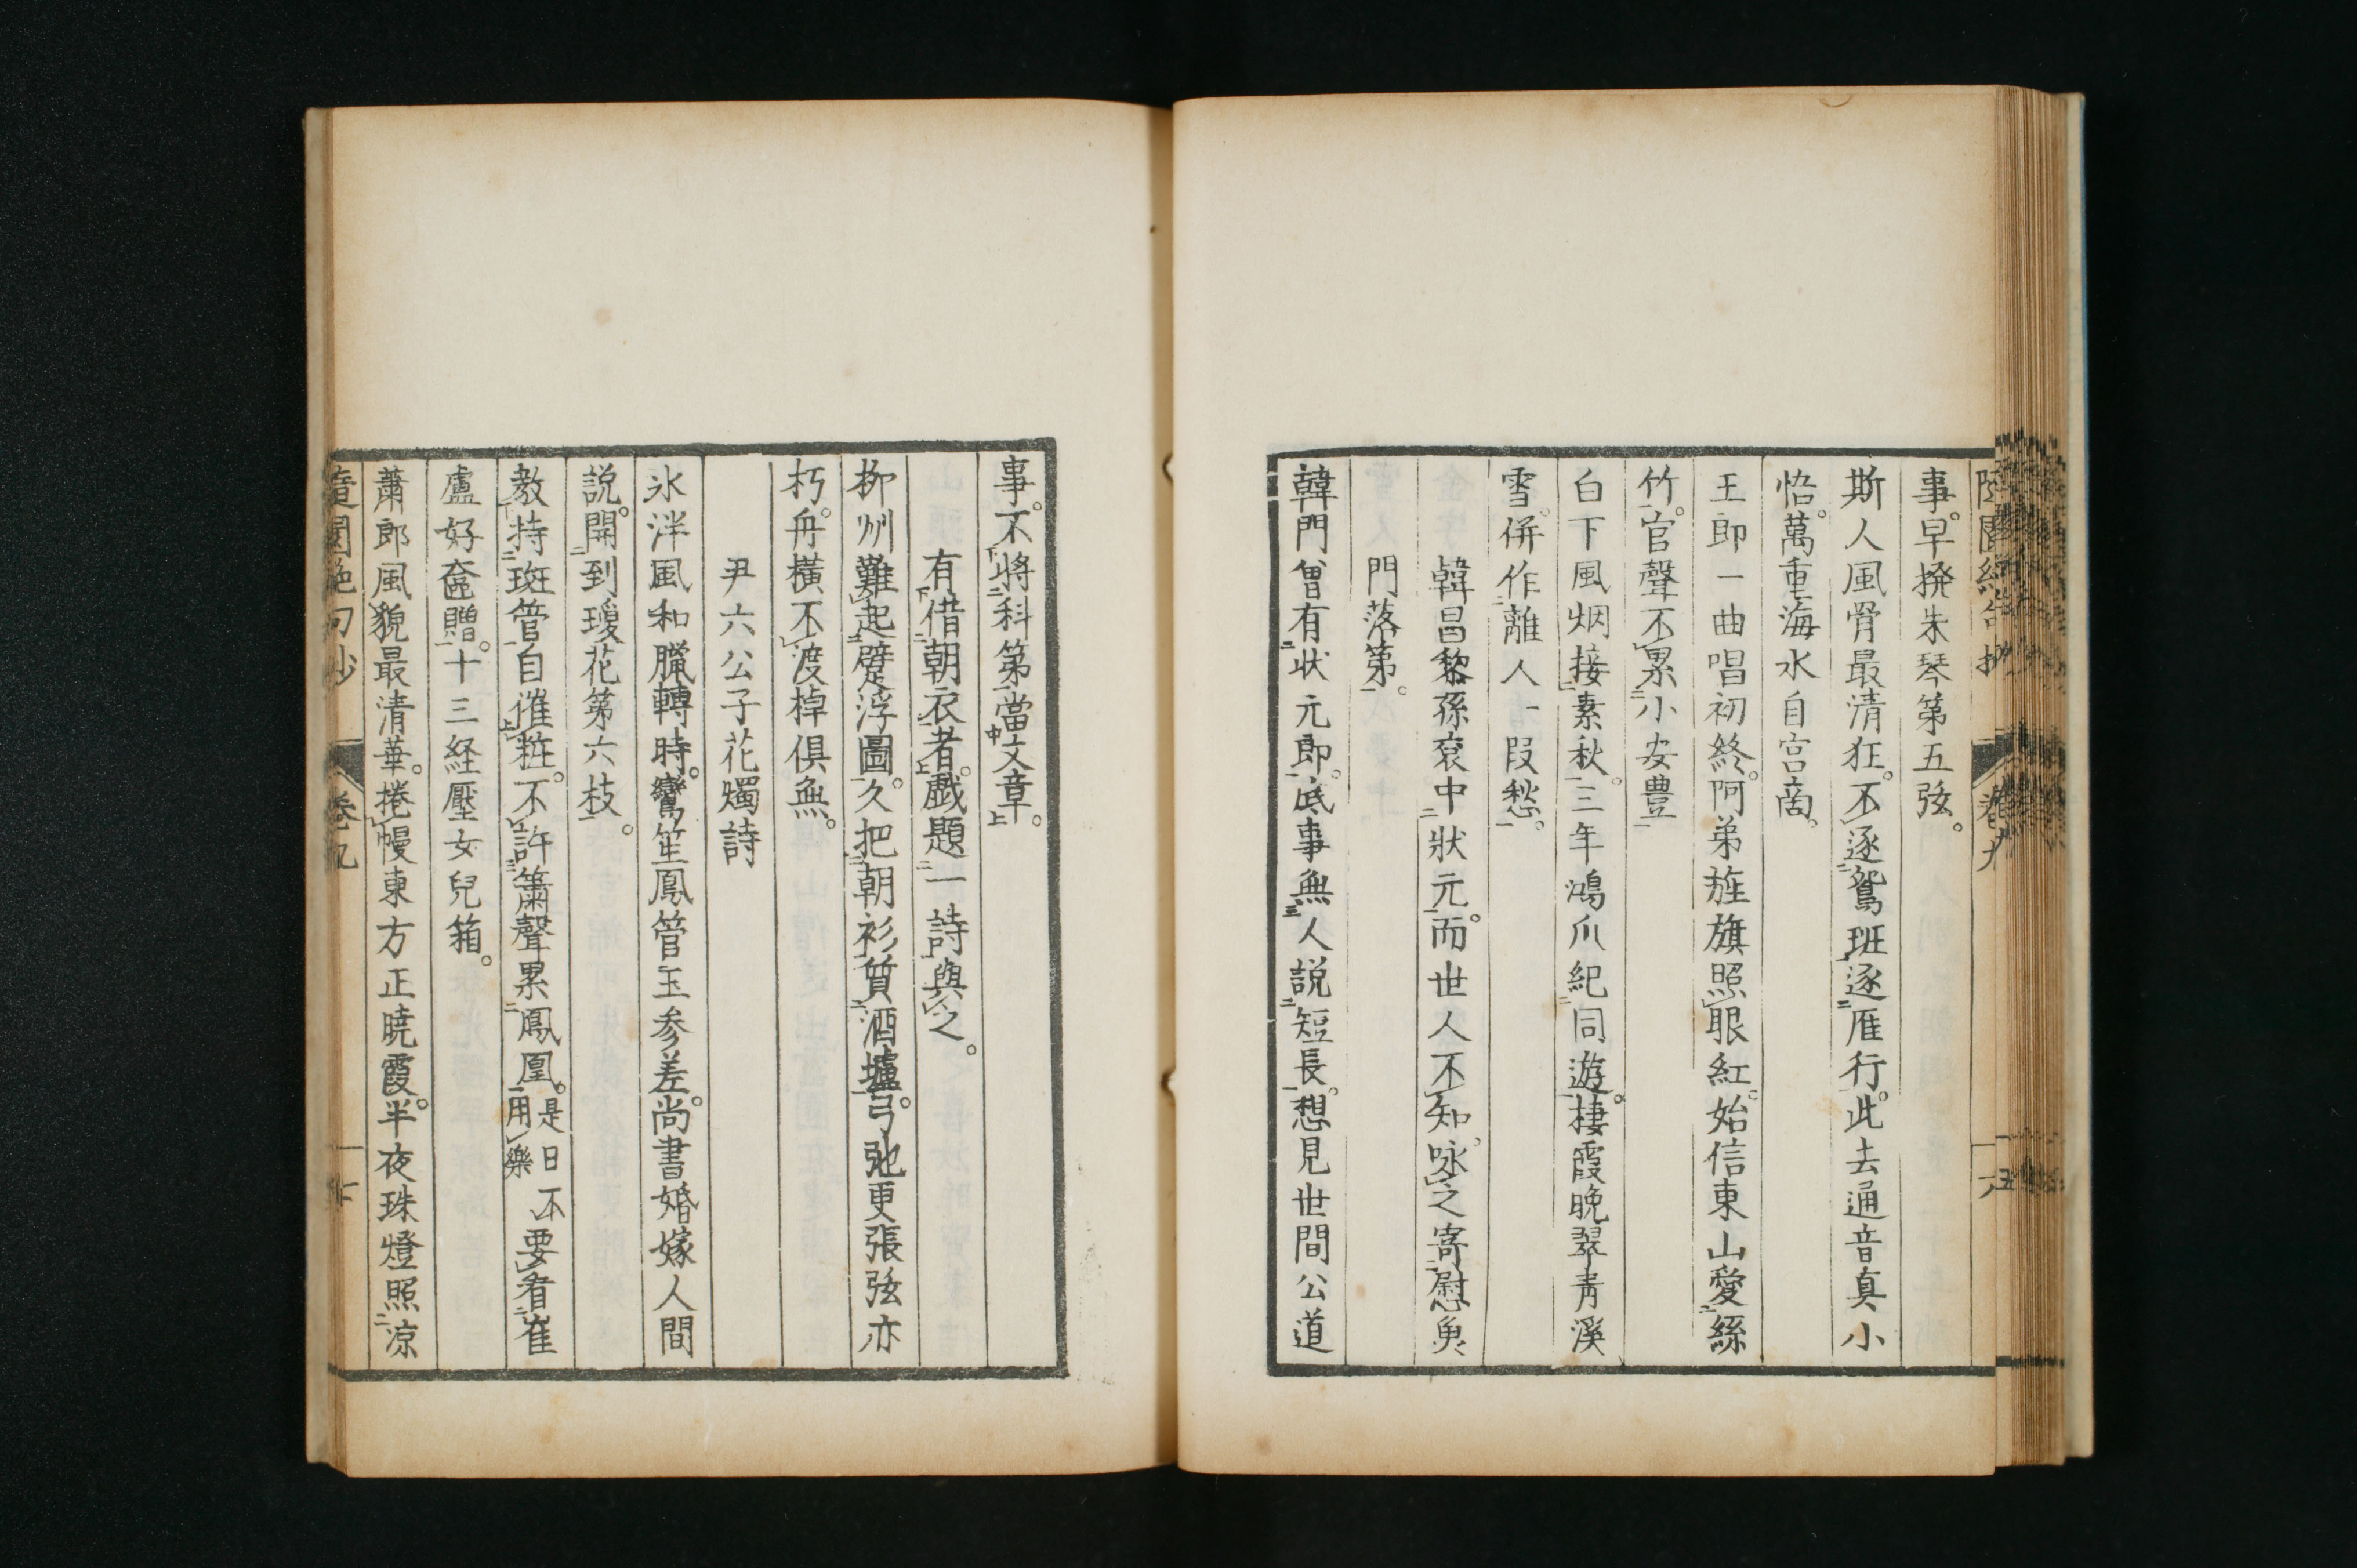 事。早撥朱琴第五弦。
斯人風骨最清狂。不逐鴛班逐雁行。此去通音真小
悟。萬重海水自宮商。
王郎一曲唱初終。阿弟旌旗照眼紅。始信東山愛絲
竹。官聲不累小安豊
白下風烟接素秋。三年鴻爪紀同遊。棲霞晩翠青溪
雪。併作離人一段愁。
韓昌黎孫衮中狀元。而世人不知。咏之寄慰魚
門落第。
韓門曽有状元郎。底事無人説短長。想見世間公道
事。不將科第當文章。
有借朝衣者。戲題一詩與之。
柳州難起躄浮圖。久把朝衫質酒壚。弓弛更張弦亦
朽。舟橫不渡棹俱無。
尹六公子花燭詩
氷泮風和臘轉時。鸞笙鳳管玉参差。尚書婚嫁人間
説。開到瓊花第六枝。
教持斑管自催粧。不許簫聲累鳳凰。是日不
用樂
要看崔
盧好奩贈。十三経壓女兒箱。
蕭郎風貌最清華。捲幔東方正曉霞。半夜珠燈照凉